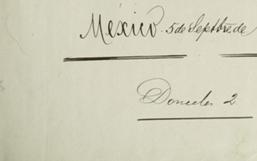 México. 5 de Septbre. de
Donceles 2